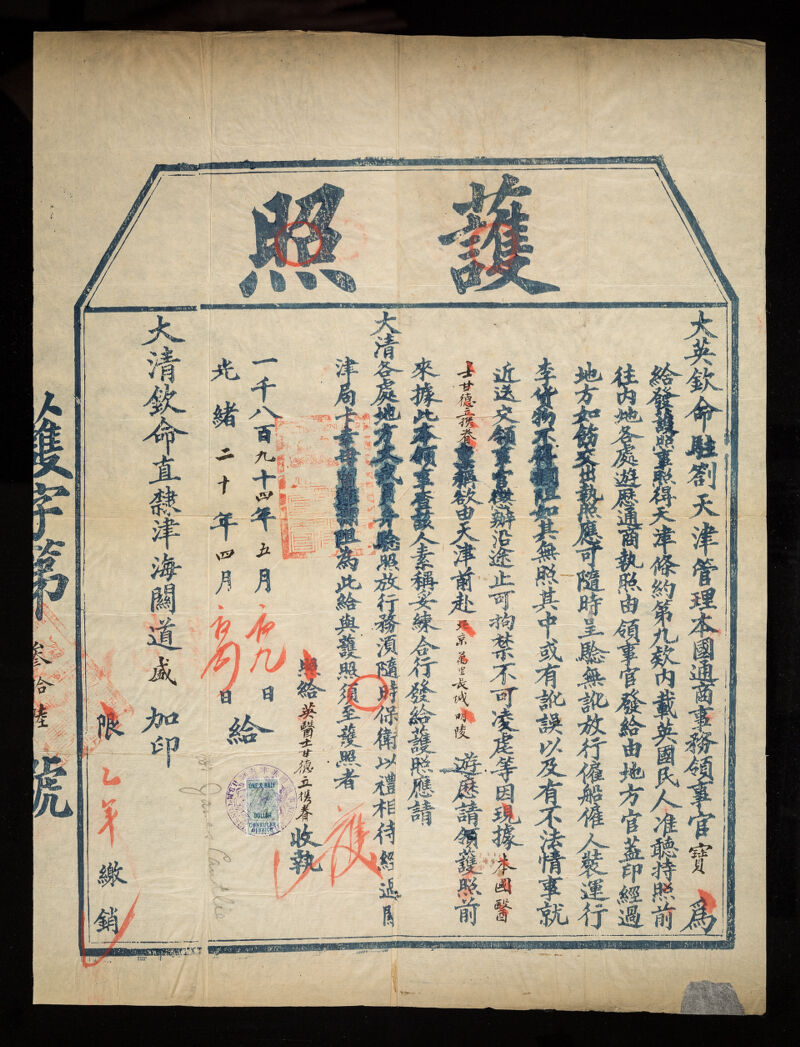 護照
大英欽命駐劄天津管理本國通商事務領事官寶 為
給發護照事照得天津條約第九款內載英國民人准聽持照前
往內地各處遊歷通商執照由領事官發給由地方官蓋印經過
地方如飭交出執照應可隨時呈驗無訛放行僱船僱人裝運行
李貨物不得攔阻如其無照其中或有訛誤以及有不法情事就
近送交領事官懲辦沿途止可拘禁不可凌虐等因現據本國醫
士甘德立攜眷稟稱欲由天津前赴北京萬里長城明陵遊歷請領護照前
來據此本領事查該人素稱妥練合行發給護照應請
大清各處地方文武員弁驗照放行務須隨時保衛以禮相待經過關
津局卡幸毋留難攔阻為此給與護照須至護照者
照給英醫士甘德立攜眷收執
護
一千八百九十四年五月廿九日
光緒二十年四月日給
大清欽命直隸津海關道盛 加印
限乙年繳銷
護字第叁拾陸號
ONE & HALF
DOLLAR
CONSULAR
SERVICE
James Cantlie